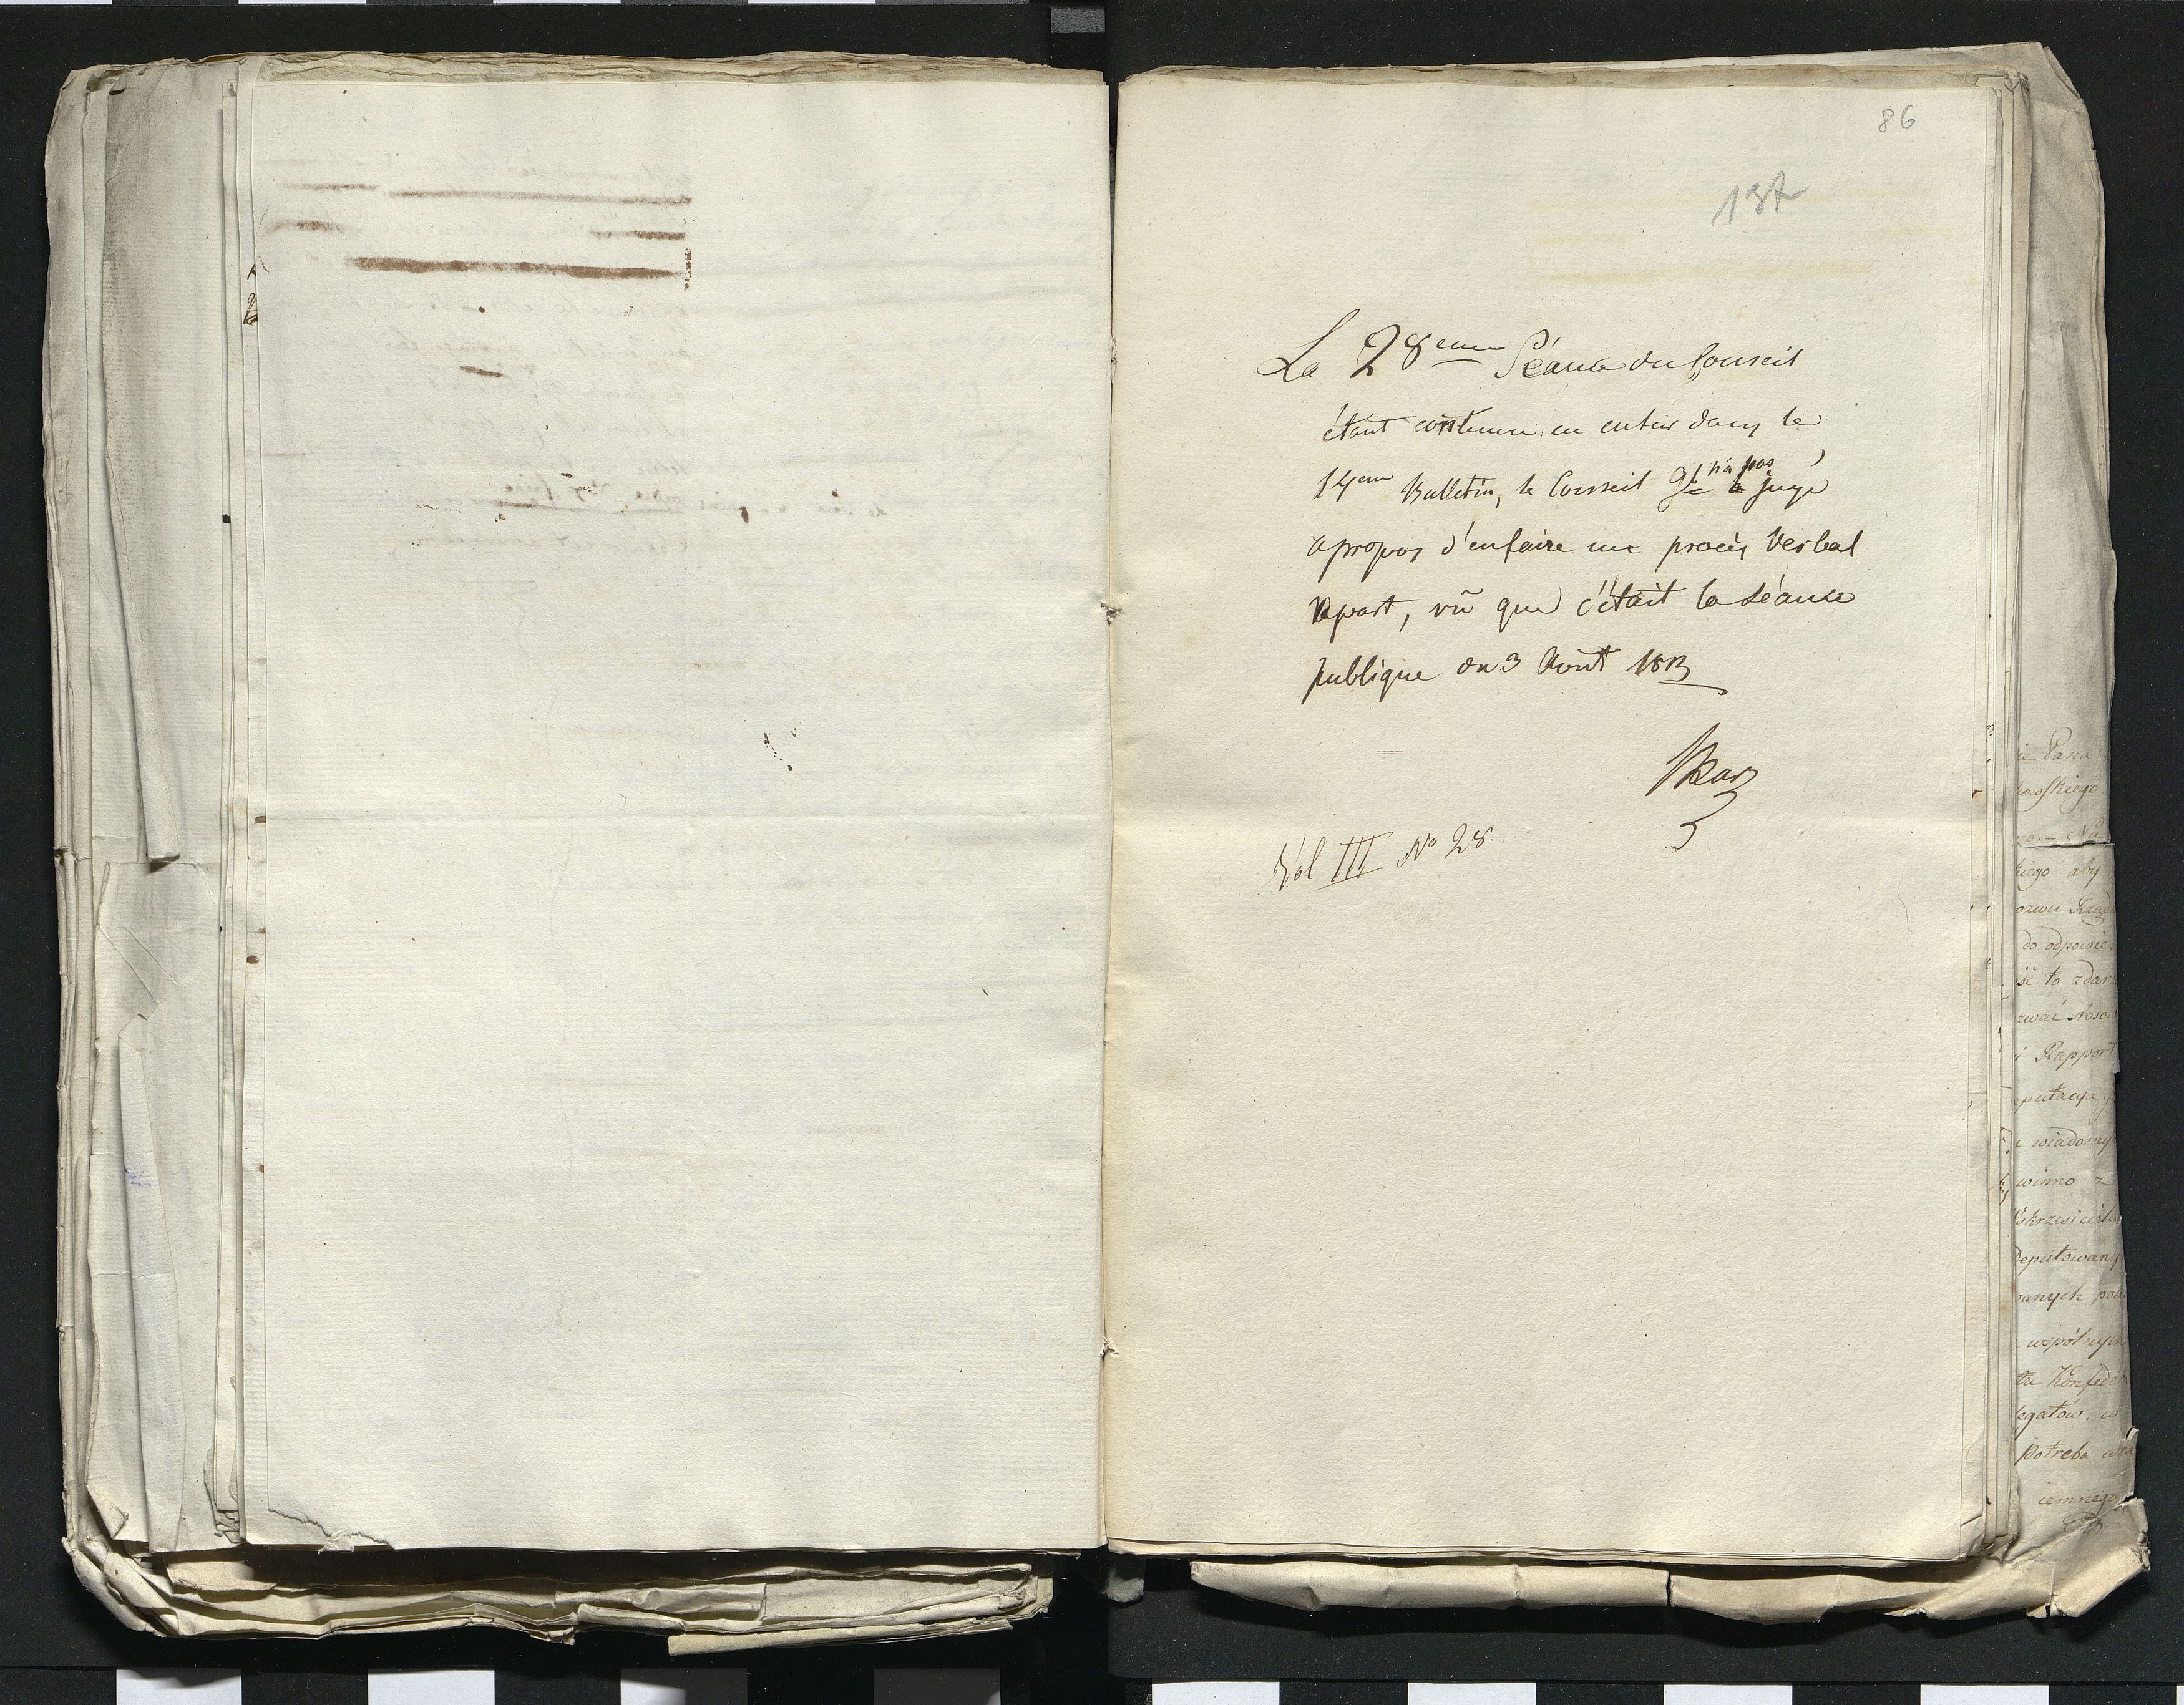 86
137
La 28eme Séance du Conseil
étant contenue en entier dans le
14eme Bulletin, le Conseil Gl n'a pas jugé
apropos d'enfaire un procès Verbal
apart, vû que c'était la séance
publique du 3 Août 1813
Vol III No 28.
ie Pana
kowskiego
kiego aby
do odpowie
się to zdar
i Rapport
putacya
i wiadomy
winno z
Deputowany
wanych pod
wspólnych
tu Konfede
legatów, w
potreba